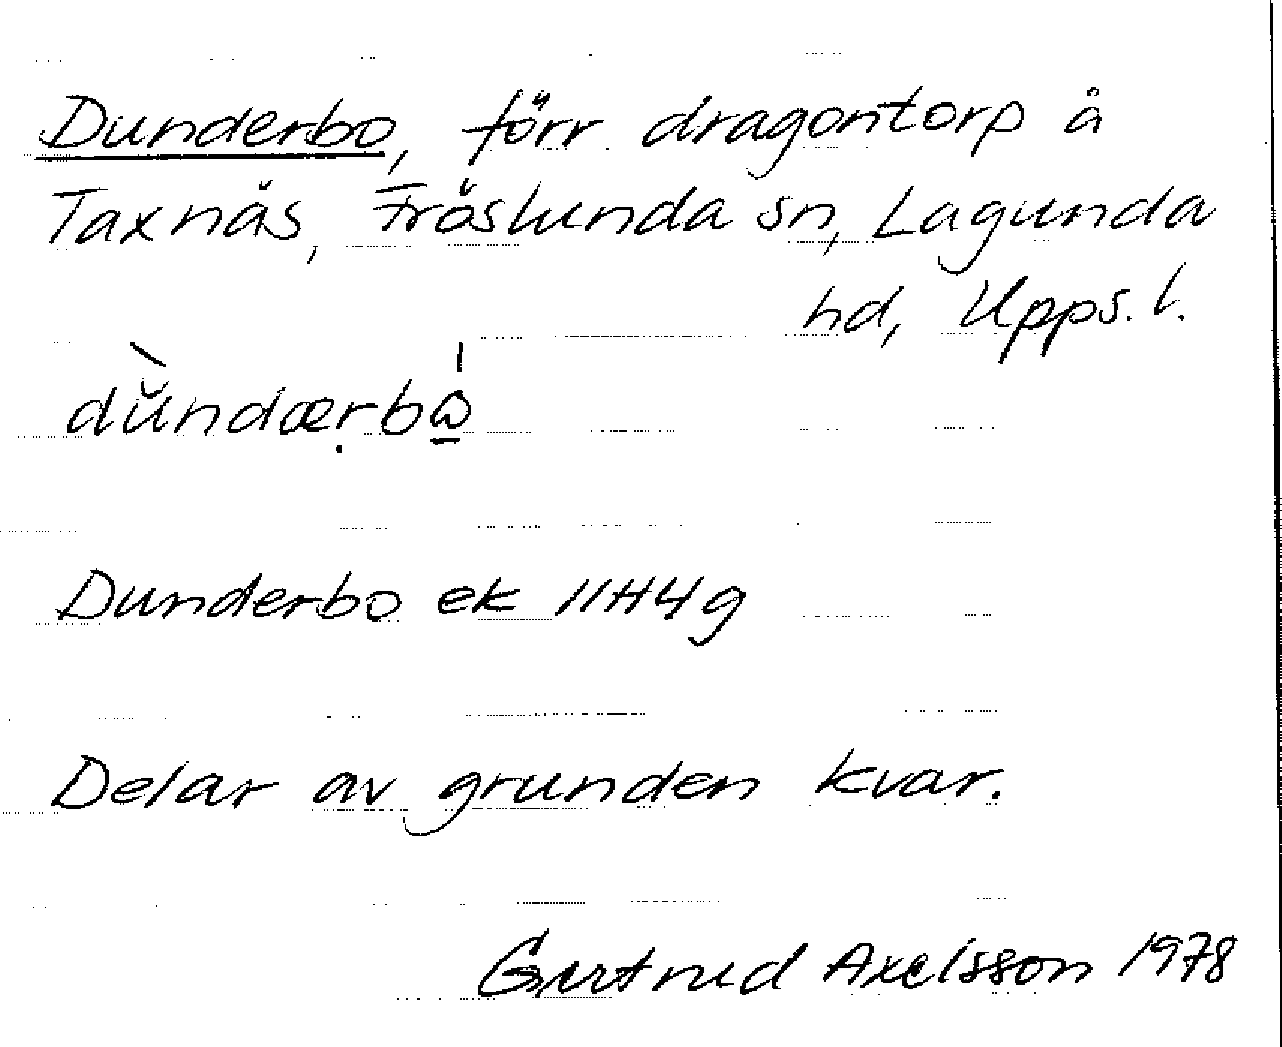 Dunderbo, förr dragontorp å
Taxnäs, Fröslunda sn, Lagunda
hd, Upps. l.
dŭ̀ndærbω̲̍
Dunderbo ek 11H4g
Delar av grunden kvar.
Gertrud Axelsson 1978